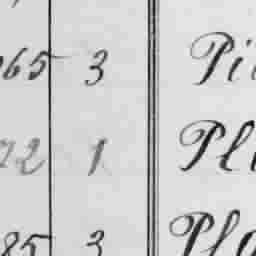 65 3 Pi
72 1 Pl
85 3 Pla